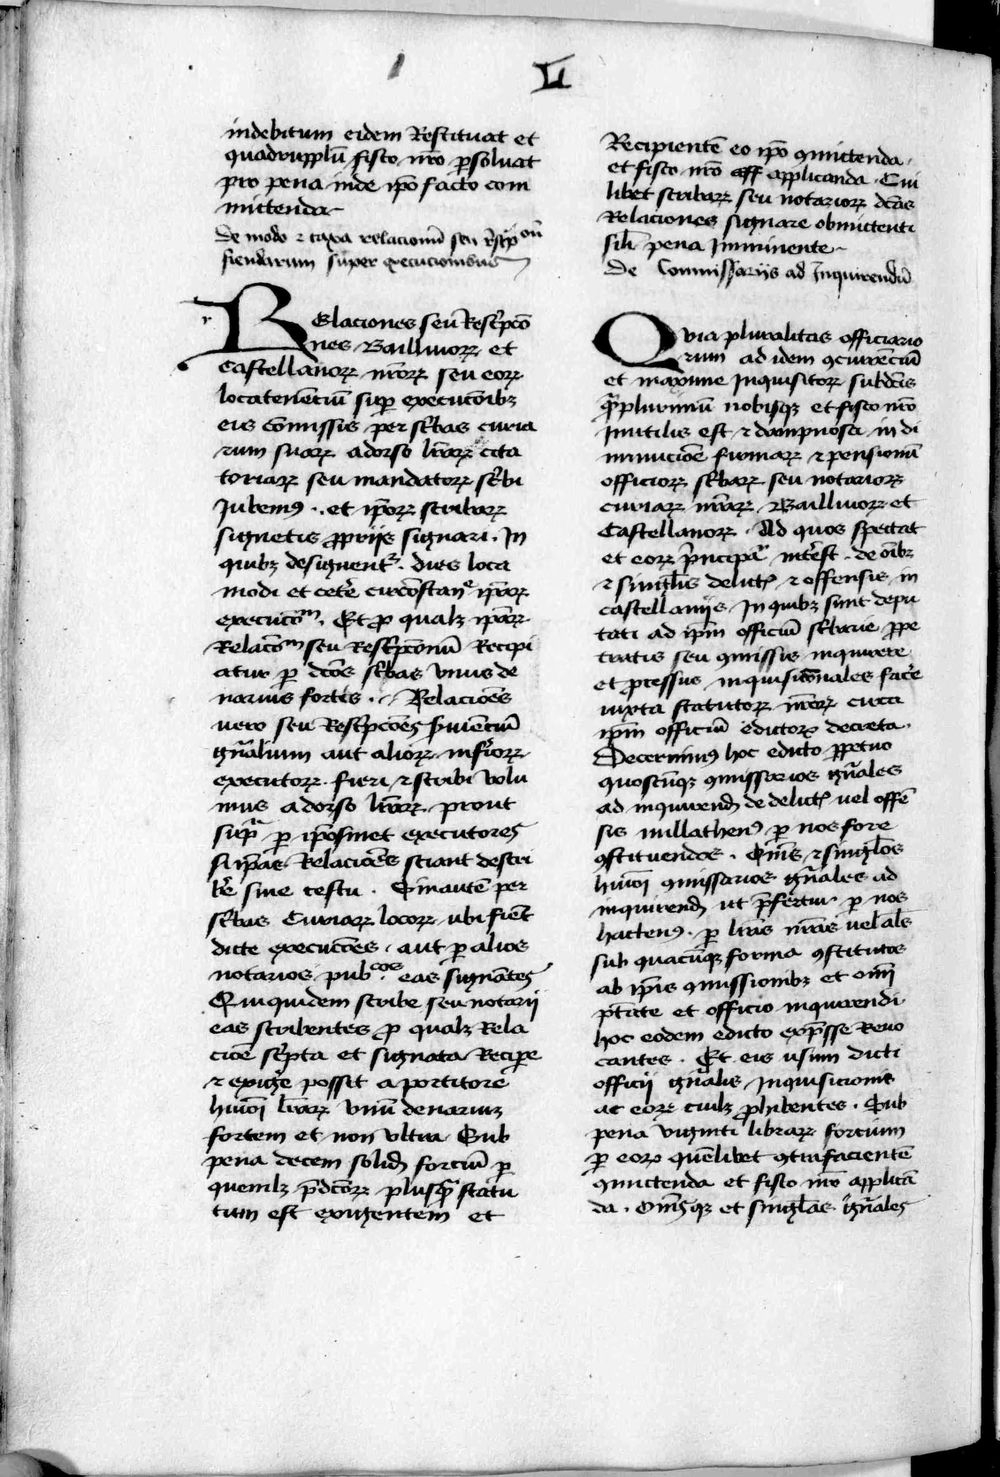 LI
indebitum eidem Restituat et
quadrupplū fisco nr̄o ꝑsoluat
pro pena inde ip̄o facto com
mittenda
De modo ⁊ taxa relacionū seu r̄scͥpoͦnū
fiendarum super execucionibus
RElaciones seu Rescͥpcō
nes Bailliuoꝝ et
Castellanoꝝ nr̄oꝝ seu eoꝝ
locatenēcium suꝑ execucōibꝫ
eis cōmissis per scͥbas curia
rum suaꝝ a dorso lr̄aꝝ cita
toriaꝝ seu mandatoꝝ scͥbi
Jubemꝰ . et ip̄oꝝ scribaꝝ
signetis ꝓpriis signari . In
quibꝫ designentᷣ . dies loca
modi et ceteͥ circōstanᵉ ip̄aꝝ
execucōm̄ . Et ꝓ qualꝫ ip̄aꝝ
Relacōm̄ seu Rescͥpcionū Recipi
atur ꝑ dcōs scͥbas vnus de
narius fortis . Relacōes
vero seu Rescͥpcōes ſuiēciū
gn̄alium aut alioꝝ inferioꝝ
executoꝝ fieri ⁊ scribi volu
mus a dorso lr̄aꝝ prout
supᵃ ꝑ ip̄osmet executores
si ip̄as Relacōes sciant descri
bēr siue testu . Sinautē per
scͥbas Curiaꝝ locoꝝ vbi fient
dicte execucōes . aut ꝑ alios
notarios pubcos . eas signātes
Quiquidem scribe seu notarii
eas scribentes ꝓ qualꝫ Rela
cioē scͥpta et signata Reciꝑe
⁊ exigēr possit a portitore
huiōi lr̄aꝝ vnū denariuꝫ
fortem et non vltra Sub
pena decem solidꝝ forciū ꝑ
quemlꝫ p̄dcōꝝ plusqᵃ statu
tum est exigentem et
Recipientē eo ip̄o ꝯmittenda .
et fisco nr̄o applicanda . Cui
libet scribaꝝ seu notarioꝝ dcās
Relaciones signare obmittenti
sil̄i pena Imminente
De Commissariis ad Inquirendū
QVia pluralitas officiario
rum ad idem ꝯcurrēciū
et maxime Inquisitoꝝ subdcīs
qᵃplurimū nobisqꝫ et fisco nr̄o
Inutilis est ⁊ dampnosa in di
minucioē firmaꝝ ⁊ pensionū
officioꝝ scͥbaꝝ seu notarioꝝ
curiaꝝ nr̄aꝝ Bailliuoꝝ et
Castellanoꝝ . Ad quos spectat
et eoꝝ pͥncipaᵗ intēst . de oībꝫ
⁊ singlīs delictꝭ ⁊ offensis in
castellaniis . In quibꝫ sunt depu
tati ad ip̄m officiū scͥbarie ꝑpe
tratis seu ꝯmissis inquirere
et ꝓcessus inquisicōnales facēr
iuxta statutoꝝ nr̄oꝝ circa
ip̄m officiū edictoꝝ decreta .
Decernimꝰ hoc edicto ꝑpetuo
quoscūqꝫ ꝯmissarios gn̄ales
ad inquirendꝝ de delictꝭ uel offen
sis nullathenꝰ ꝑ nos fore
ꝯstituendos . Om̄s ⁊ singlōs
huiōi ꝯmissarios gn̄ales ad
inquirendꝝ ut p̄fertur . ꝑ nos
hactenꝰ . ꝑ lr̄as nr̄as uel al̄s
sub quacūqꝫ forma ꝯstitutos
ab ip̄is ꝯmissionibꝫ et om̄i
ptāte et officio inquirendi
hoc eodem edicto exp̄sse Reuo
cantes . Et eis usum dicti
officii gn̄alis Inquisicionis
ac eoꝝ cuilꝫ ꝓhibentes . Sub
pena viginti libraꝝ forcium
ꝑ eoꝝ quēlibet ꝯtrafacientē
ꝯmittenda et fisco nr̄o applicā
da . Om̄sqꝫ et singlās gn̄ales